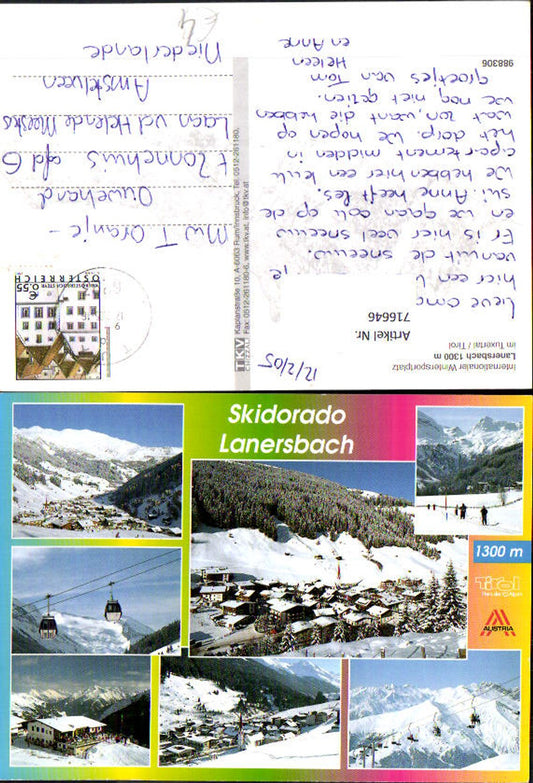 €4
988306
Internationaler Wintersportplatz
Lanersbach 1300 m
im Tuxertal / Tirol
12/2/05
Artikel Nr.
716646
Lieve oma
hier een
vanuit de sneeuw.
Er is hier veel sneeuw
en we gaan ook op de
ski. Anne heeft les.
We hebben hier een leuk
apartement midden in
het dorp. We hopen op
wat zon, want die hebben
we nog niet gezien.
Groetjes van Tom
Heleen
en Anne
TKV
Kaplanstraße 10, A-6063 Rum/Innsbruck, Tel. 0512-261180,
Fax: 0512-261180-6, www.tkv.at, info@tkv.at
ÖSTERREICH
€ 0,55
Mw T. Oranje-
Ouwehand
't Zonnehuis afd G
Laan vd Helende Meesters
Amstelveen
Niederlande
Skidorado
Lanersbach
1300 m
Tirol
AUSTRIA